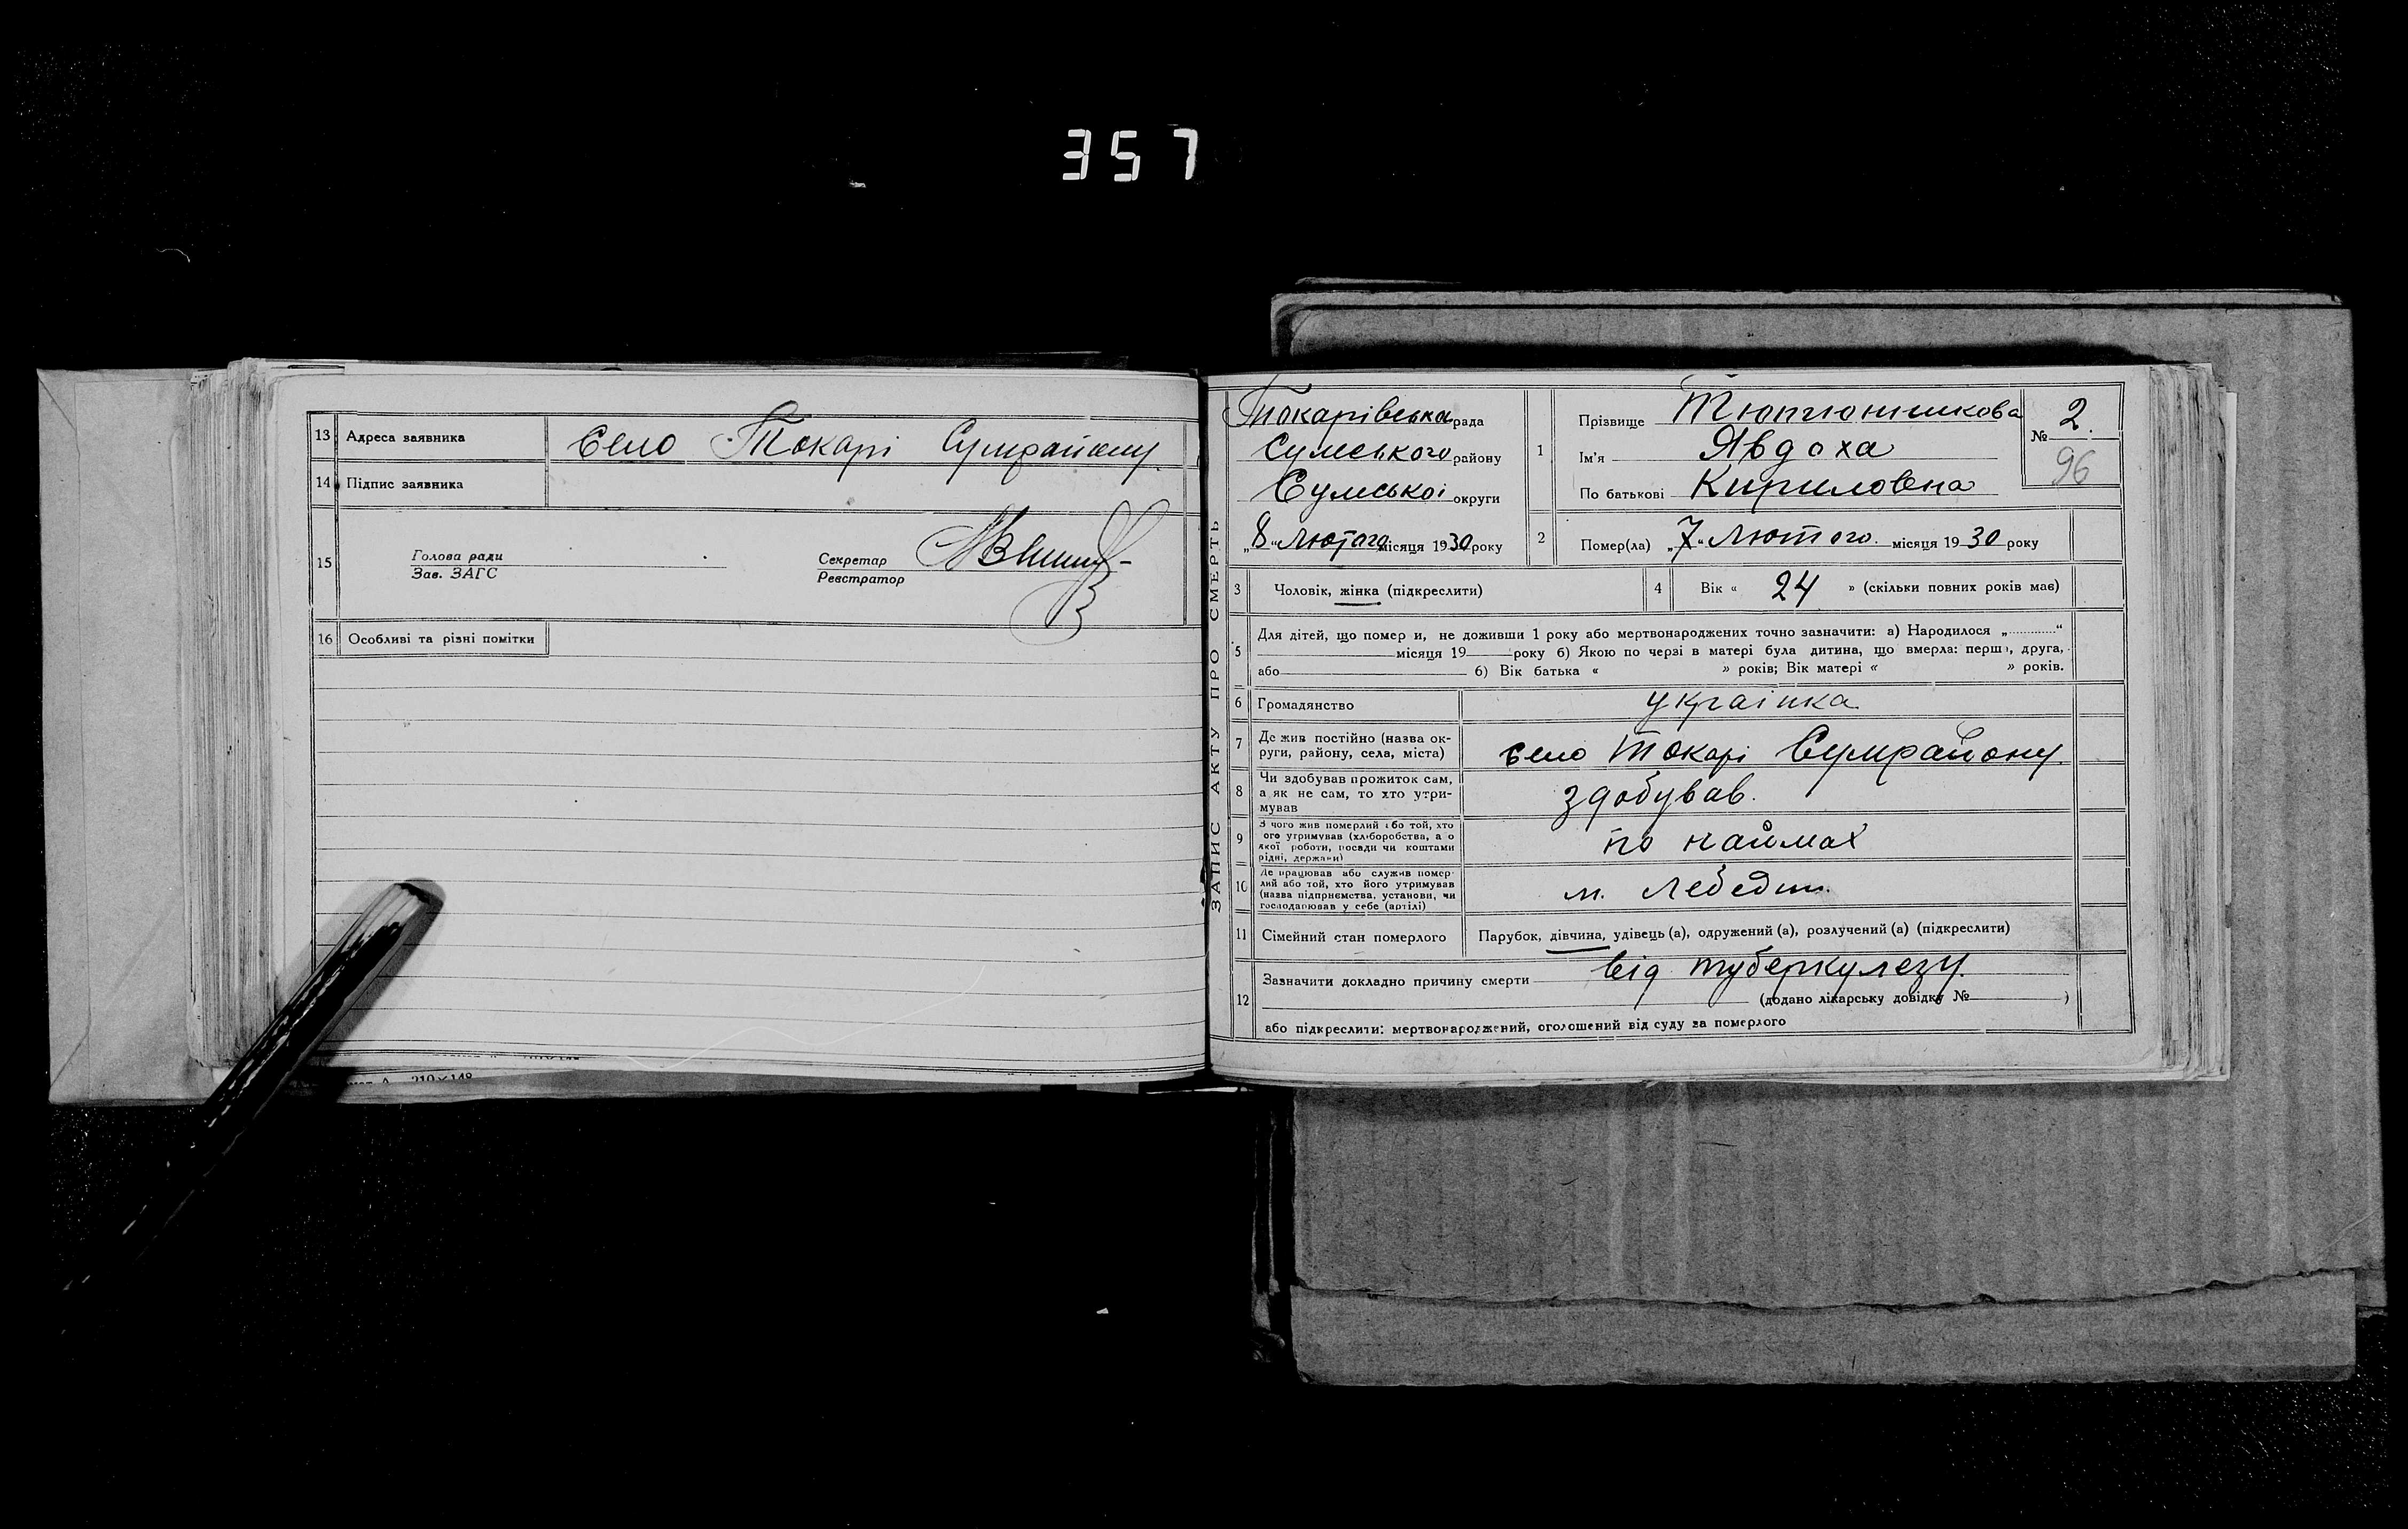 357
13 Адреса заявника Село Токарі Сумрайону
14 Підпис заявника
15 Голова ради Секретар
Зав. ЗАГС Реєстратор
16 Особливі та різні помітки
210×148
ЗАПИС АКТУ ПРО СМЕРТЬ
Токарівська рада
Сумського району
Сумськоі округи
„8“ Лютого місяця 1930 року
1 Прізвище Тютюнникова
Ім'я Явдоха
По батькові Кириловна
№ 2.
96
2 Помер(ла) „7“ Лютого. місяця 1930 року
3 Чоловік, жінка (підкреслити)
4 Вік « 24 » (скільки повних років має)
5 Для дітей, що помер и, не доживши 1 року або мертвонароджених точно зазначити: а) Народилося „..........“
місяця 19 року б) Якою по черзі в матері була дитина, що вмерла: перша, друга,
або б) Вік батька « » років; Вік матері « » років.
6 Громадянство украінка
7 Де жив постійно (назва ок-
руги, району, села, міста) село Токарі Сумрайону.
8 Чи здобував прожиток сам,
а як не сам, то хто утри-
мував здобував.
9 З чого жив померлий або той, хто
ого утримував (хліборобства, а о
якої роботи, посади чи коштами
рідні, держави) по наймах
10 Де працював або служив помер-
лий або той, хто його утримував
(назва підприємства, установи, чи
господарював у себе (артілі) м. Лебедин.
11 Сімейний стан померлого Парубок, дівчина, удівець (а), одружений (а), розлучений (а) (підкреслити)
12 Зазначити докладно причину смерти від туберкулезу.
(додано лікарську довідку № )
або підкреслити: мертвонароджений, оголошений від суду за померлого